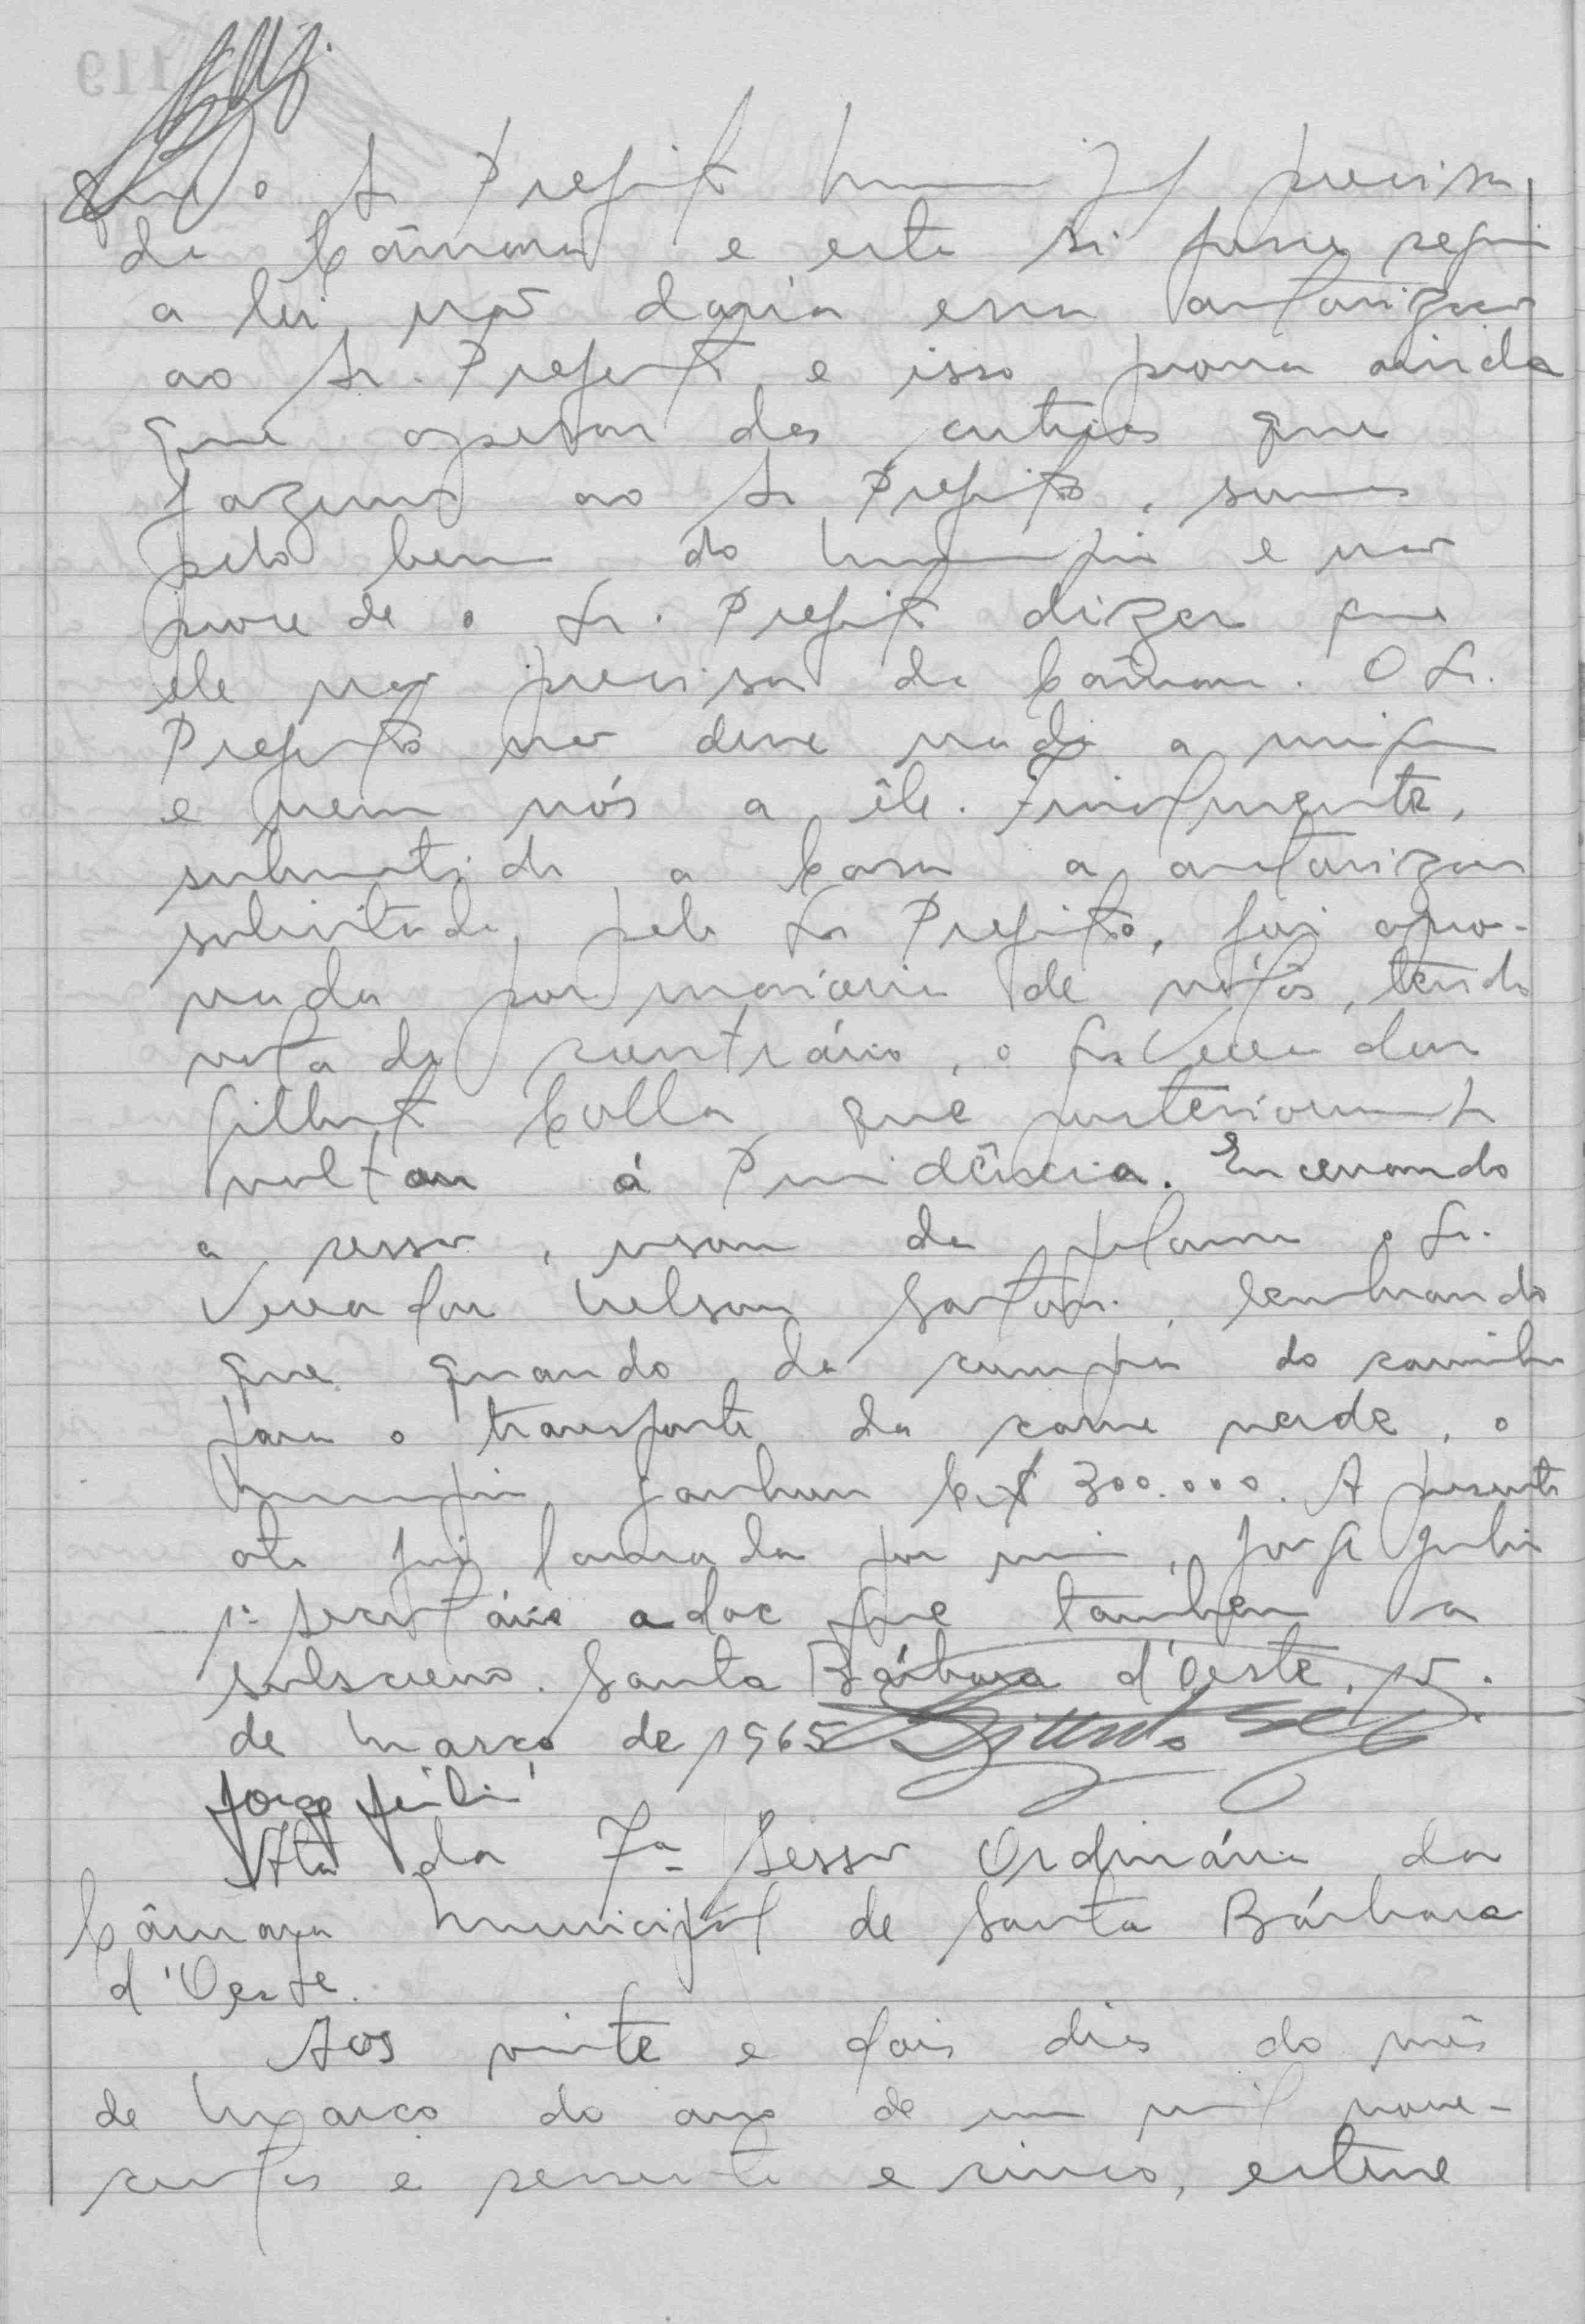 que o Sr Prefeito Municipal precisa
da Câmara e esta si fosse seguir
a lei, não daria essa autorização
ao Sr. Prefeito e isso prova ainda
que apesar das criticas que
fazemos ao Sr Prefeito, somos
pelo bem do Municipio e não
procede o Sr. Prefeito dizer que
ele não precisa da Câmara. O Sr.
Prefeito não deve nada a mim
e nem nós a êle. Finalmente,
submetida a Casa a autorização
solicitada pelo Sr Prefeito, foi apro-
vada por maioria de votos, tendo
votado contrário, o Sr Vereador
Gilberto Colla que posteriormente
voltou á Presidência. Encerrando
a sessão, usou da palavra o Sr.
Vereador Nelson Sartori, lembrando
que quando da compra do caminhão
para o transporte da carne verde, o
Municipio ganhou Cr$ 300.000. A presente
ata foi lavrada por mim, Jorge Juliu
1º Secretário adoc que tambem a
subscrevo. Santa Bárbara d'Oeste, 15.
de Março de 1965
Jorge
Ata da 7ª Sessão Ordinária da
Câmara Municipal de Santa Bárbara
d'Oeste.
Aos vinte e dois dias do mês
de Março do ano de um mil nove-
centos e sessenta e cinco, esteve